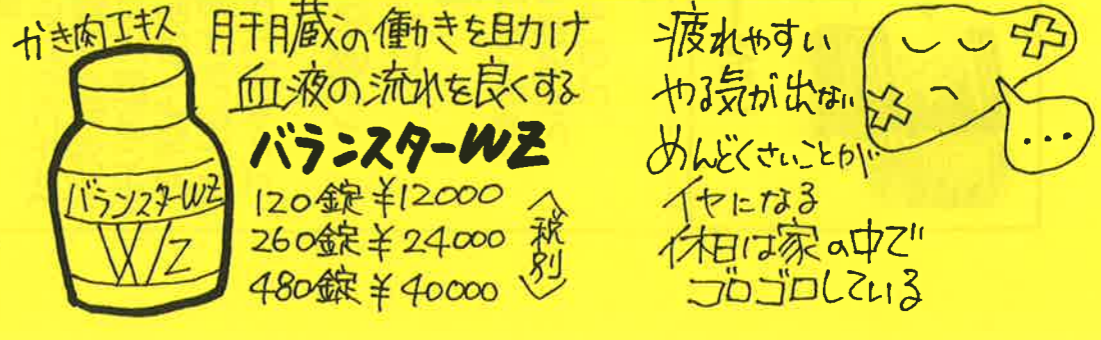 かき肉エキス
肝臓の働きを助け
血液の流れを良くする
バランスターWZ
120錠 ¥12000
260錠 ¥24000
480錠 ¥40000
〈税別〉
バランスターWZ
W/Z
疲れやすい
やる気が出ない
めんどくさいことが
イヤになる
休日は家の中で
ゴロゴロしている
...